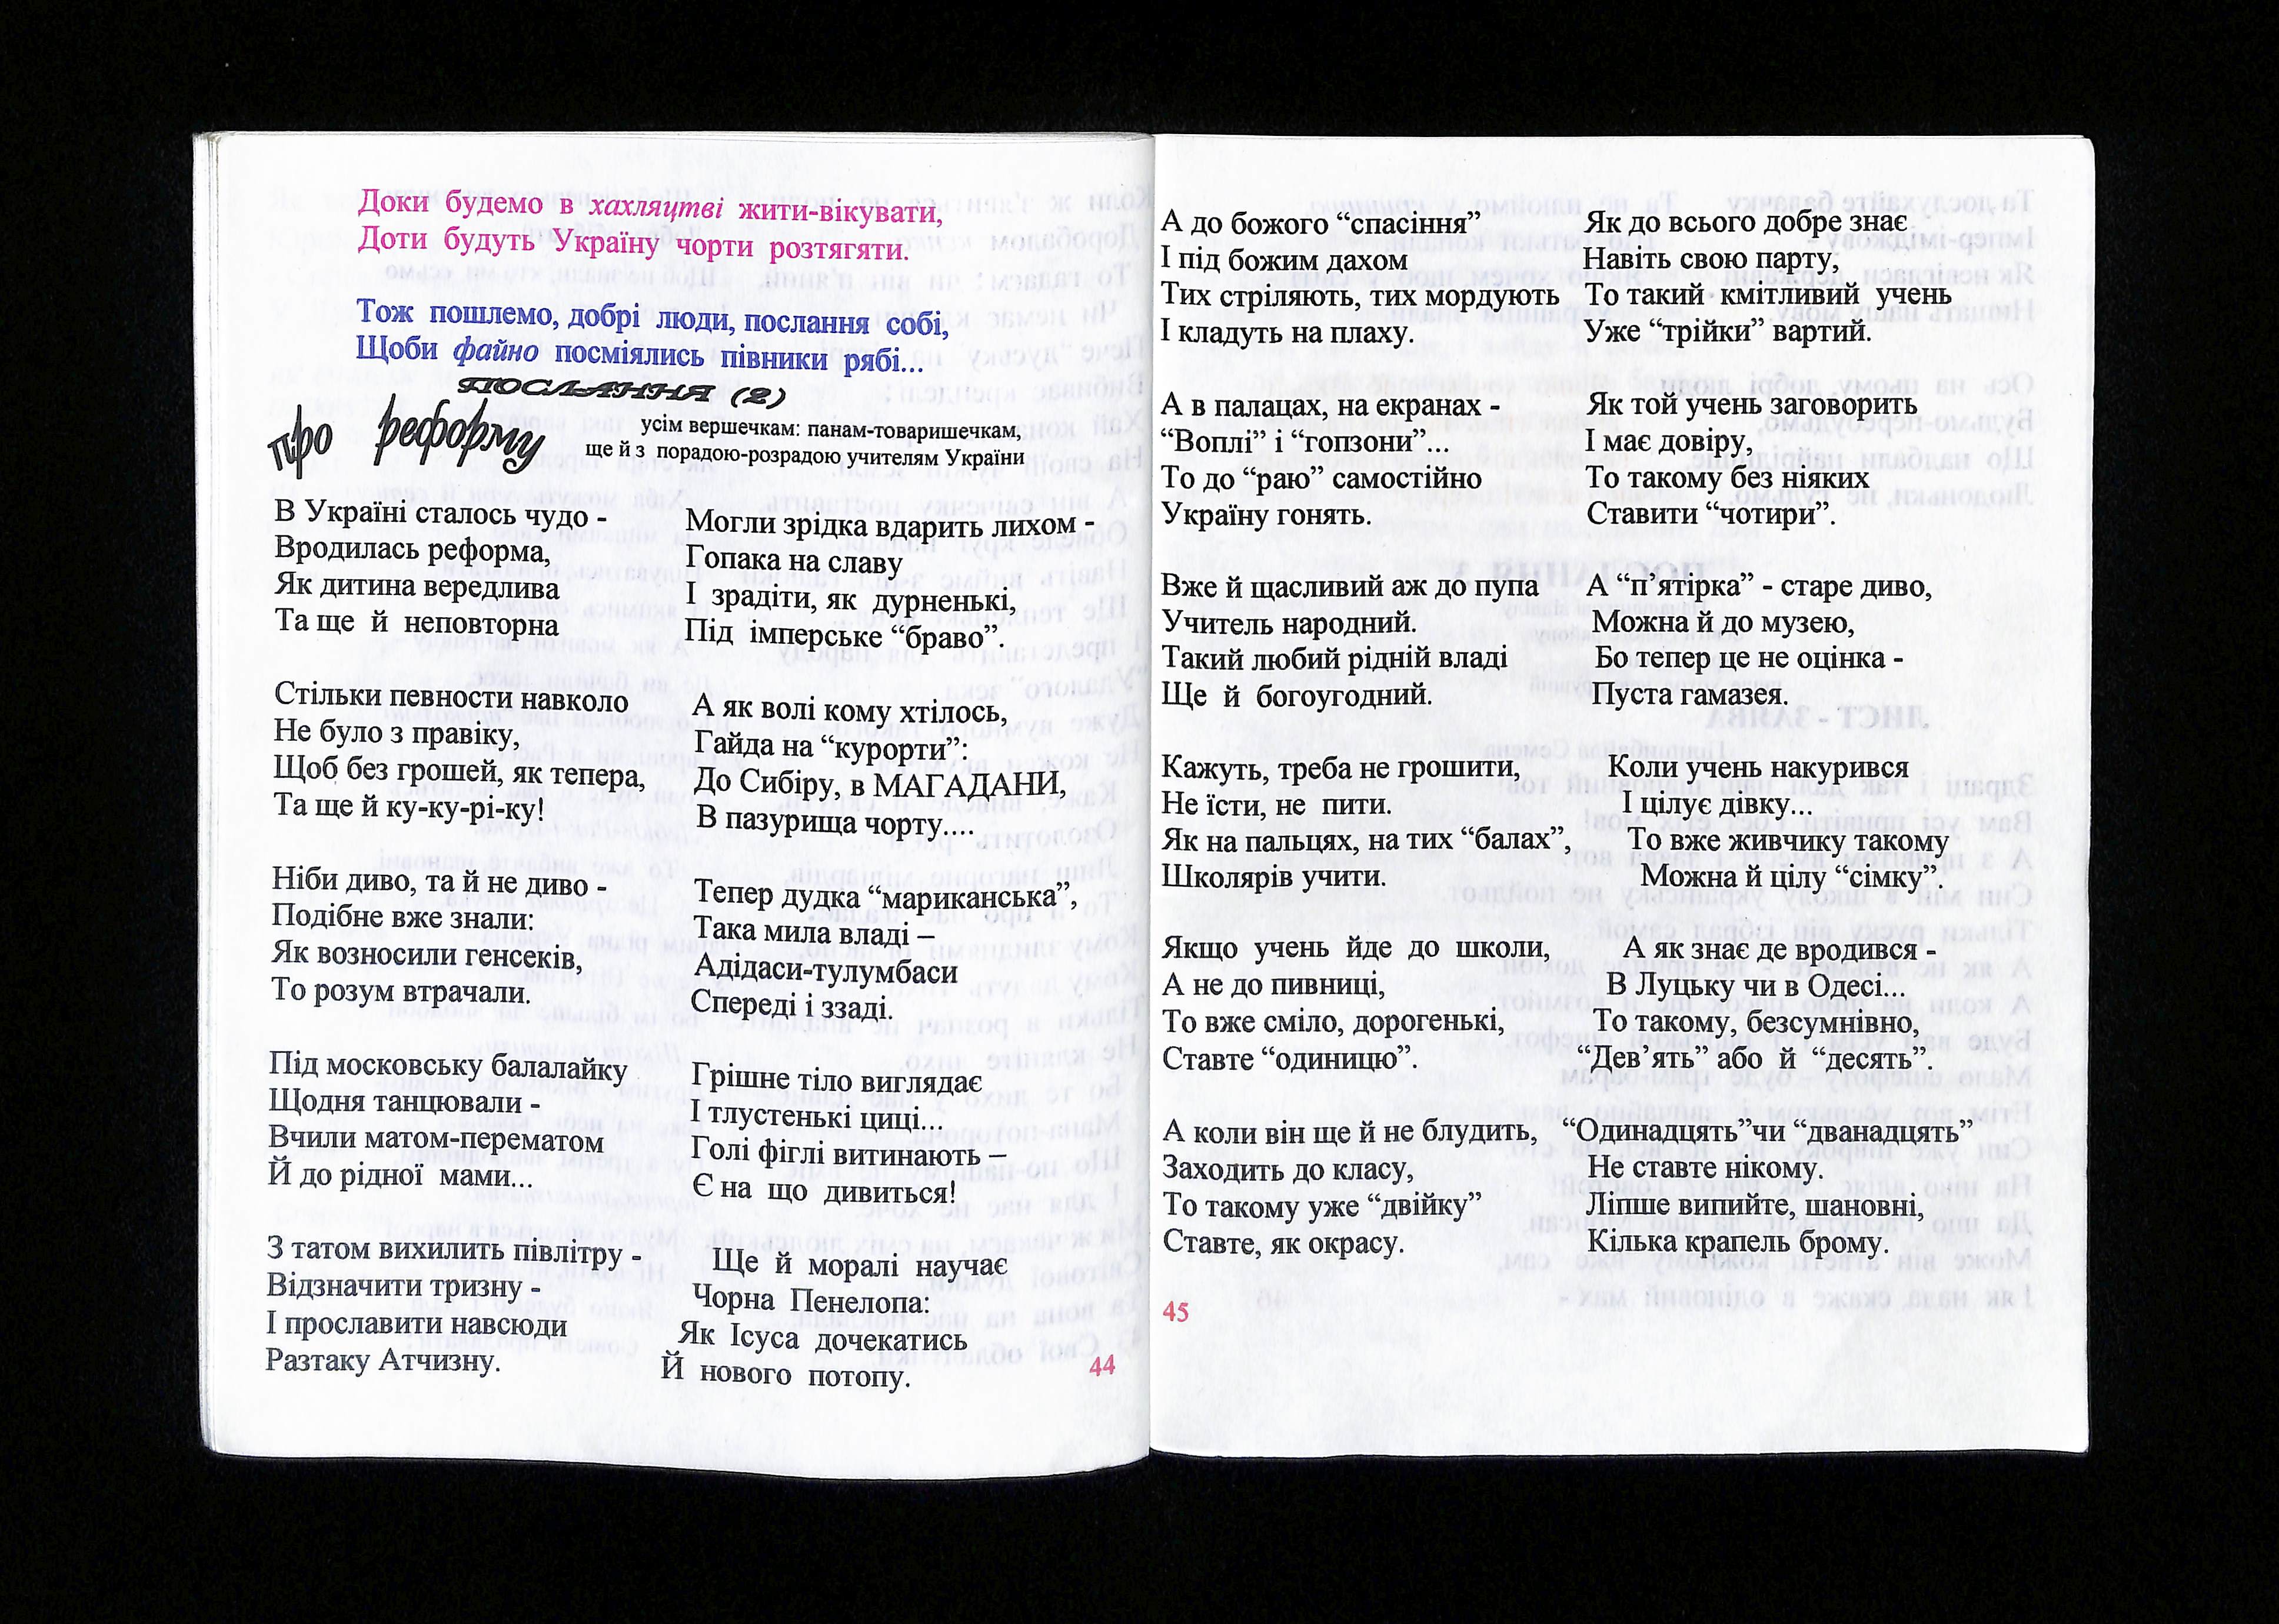 Доки будемо в хахляцтві жити-вікувати,
Доти будуть Україну чорти розтягяти.
Тож пошлемо, добрі люди, послання собі,
Щоби файно посміялись півники рябі...
ПОСЛАННЯ (2)
про реформу
усім вершечкам: панам-товаришечкам,
ще й з порадою-розрадою учителям України
В Україні сталось чудо -
Вродилась реформа,
Як дитина вередлива
Та ще й неповторна
Стільки певности навколо
Не було з правіку,
Щоб без грошей, як тепера,
Та ще й ку-ку-рі-ку!
Ніби диво, та й не диво -
Подібне вже знали:
Як возносили генсеків,
То розум втрачали.
Під московську балалайку
Щодня танцювали -
Вчили матом-перематом
Й до рідної мами...
З татом вихилить півлітру -
Відзначити тризну -
І прославити навсюди
Разтаку Атчизну.
Могли зрідка вдарить лихом -
Гопака на славу
І зрадіти, як дурненькі,
Під імперське “браво”.
А як волі кому хтілось,
Гайда на “курорти”:
До Сибіру, в МАГАДАНИ,
В пазурища чорту....
Тепер дудка “мариканська”,
Така мила владі –
Адідаси-тулумбаси
Спереді і ззаді.
Грішне тіло виглядає
І тлустенькі циці...
Голі фіглі витинають –
Є на що дивиться!
Ще й моралі научає
Чорна Пенелопа:
Як Ісуса дочекатись
Й нового потопу.
44
А до божого “спасіння”
І під божим дахом
Тих стріляють, тих мордують
І кладуть на плаху.
А в палацах, на екранах -
“Воплі” і “гопзони”...
То до “раю” самостійно
Україну гонять.
Вже й щасливий аж до пупа
Учитель народний.
Такий любий рідній владі
Ще й богоугодний.
Кажуть, треба не грошити,
Не їсти, не пити.
Як на пальцях, на тих “балах”,
Школярів учити.
Якщо учень йде до школи,
А не до пивниці,
То вже сміло, дорогенькі,
Ставте “одиницю”.
А коли він ще й не блудить,
Заходить до класу,
То такому уже “двійку”
Ставте, як окрасу.
Як до всього добре знає
Навіть свою парту,
То такий кмітливий учень
Уже “трійки” вартий.
Як той учень заговорить
І має довіру,
То такому без ніяких
Ставити “чотири”.
А “п’ятірка” - старе диво,
Можна й до музею,
Бо тепер це не оцінка -
Пуста гамазея.
Коли учень накурився
І цілує дівку...
То вже живчику такому
Можна й цілу “сімку”.
А як знає де вродився -
В Луцьку чи в Одесі...
То такому, безсумнівно,
“Дев’ять” або й “десять”.
“Одинадцять”чи “дванадцять”
Не ставте нікому.
Ліпше випийте, шановні,
Кілька крапель брому.
45